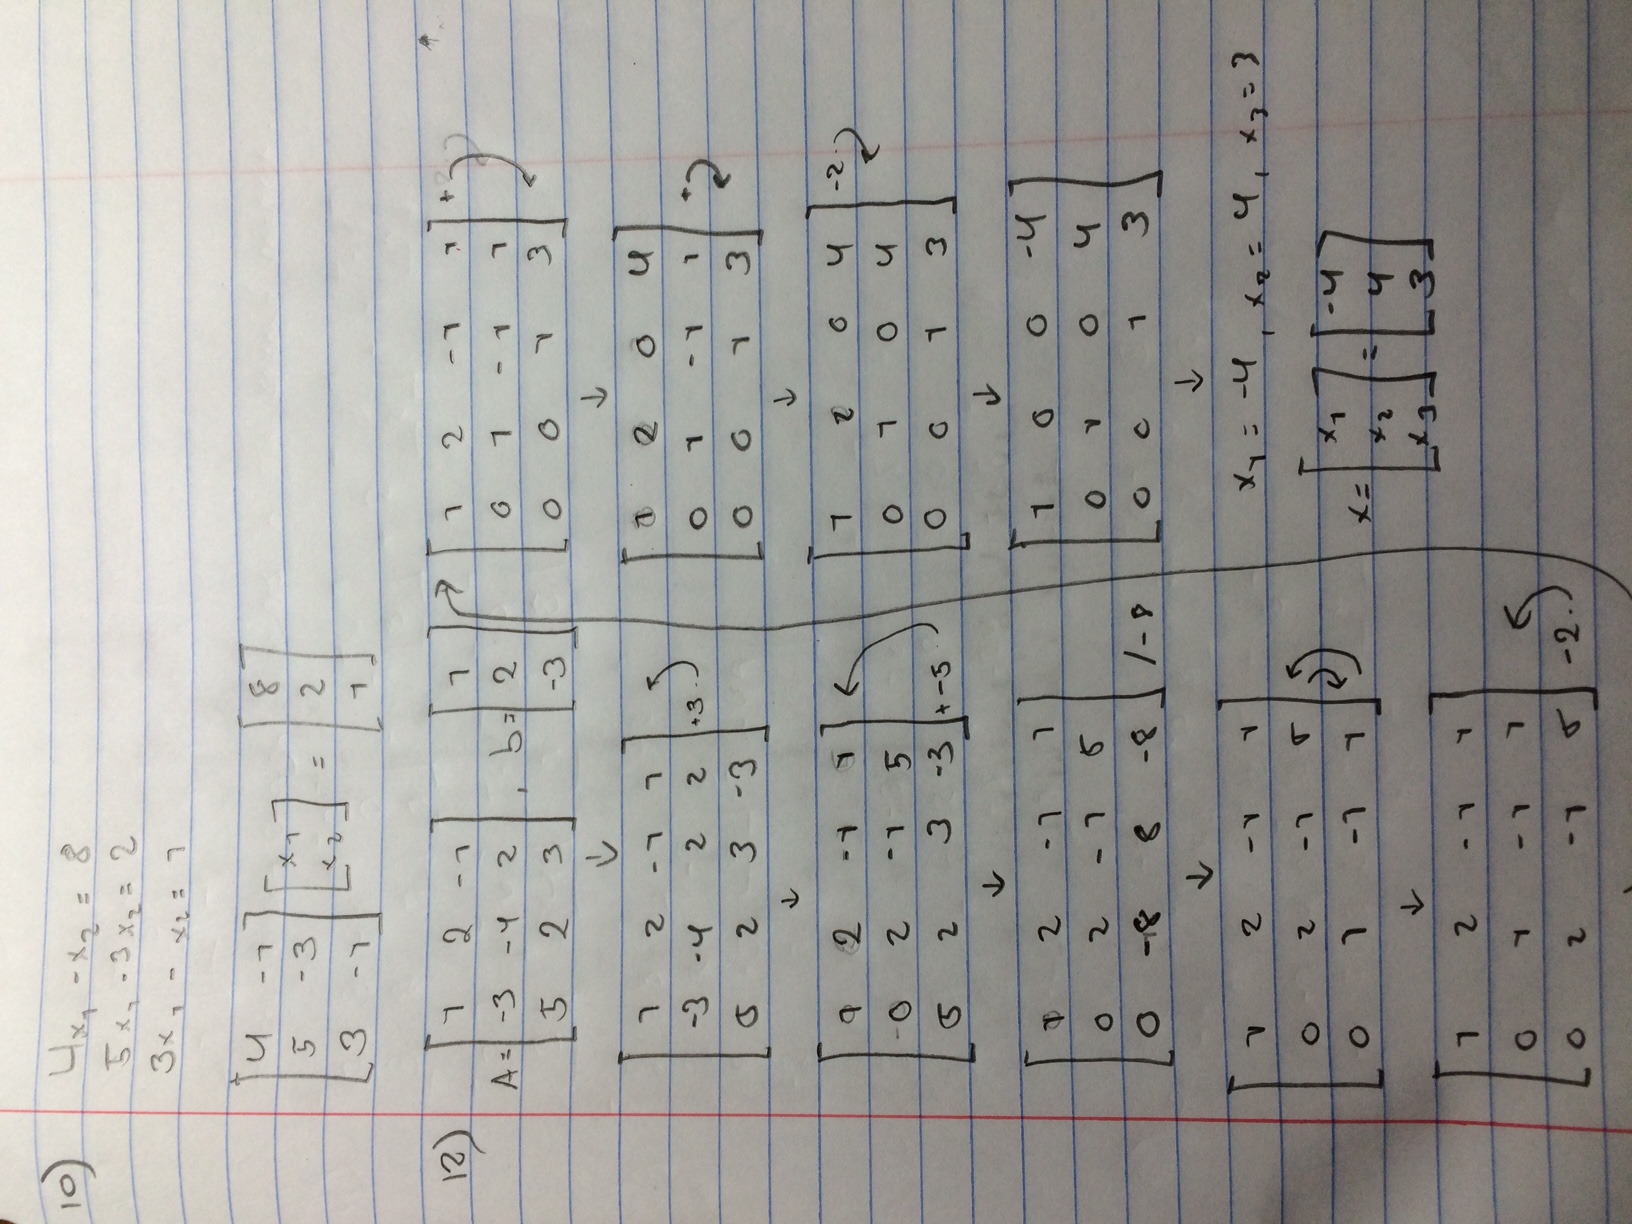 10) 4x₁ - x₂ = 8
5x₁ - 3x₂ = 2
3x₁ - x₂ = 1
[4 -1] [x₁] = [8]
[5 -3] [x₂] [2]
[3 -1] [1]
12) A = [1 2 -1] , b = [1]
[-3 -4 2] [2]
[5 2 3] [-3]
↓
[1 2 -1 1]
[-3 -4 2 2] +3·
[5 2 3 -3]
↓
[1 2 -1 1]
[-0 2 -1 5]
[5 2 3 -3] + -5·
↓
[1 2 -1 1]
[0 2 -1 5]
[0 -8 8 -8] / -8
↓
[1 2 -1 1]
[0 2 -1 5]
[0 1 -1 1]
↓
[1 2 -1 1]
[0 1 -1 1]
[0 2 -1 5] -2·
[1 2 -1 1] +
[0 1 -1 1]
[0 0 1 3]
↓
[1 2 0 4]
[0 1 -1 1] +
[0 0 1 3]
↓
[1 2 0 4] -2·
[0 1 0 4]
[0 0 1 3]
↓
[1 0 0 -4]
[0 1 0 4]
[0 0 1 3]
↓
x₁ = -4, x₂ = 4, x₃ = 3
x = [x₁] = [-4]
[x₂] [4]
[x₃] [3]